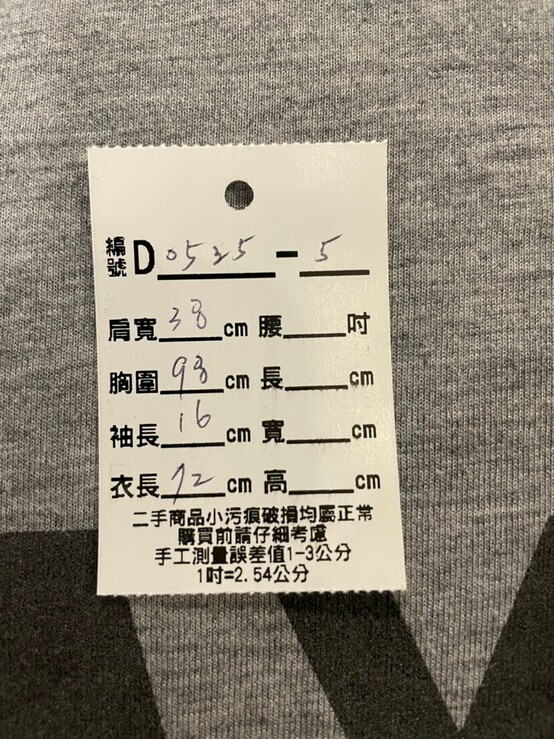 編號 D 0525 - 5
肩寬 38 cm 腰____吋
胸圍 98 cm 長____cm
袖長 16 cm 寬____cm
衣長 72 cm 高____cm
二手商品小污痕破損均屬正常
購買前請仔細考慮
手工測量誤差值1-3公分
1吋=2.54公分